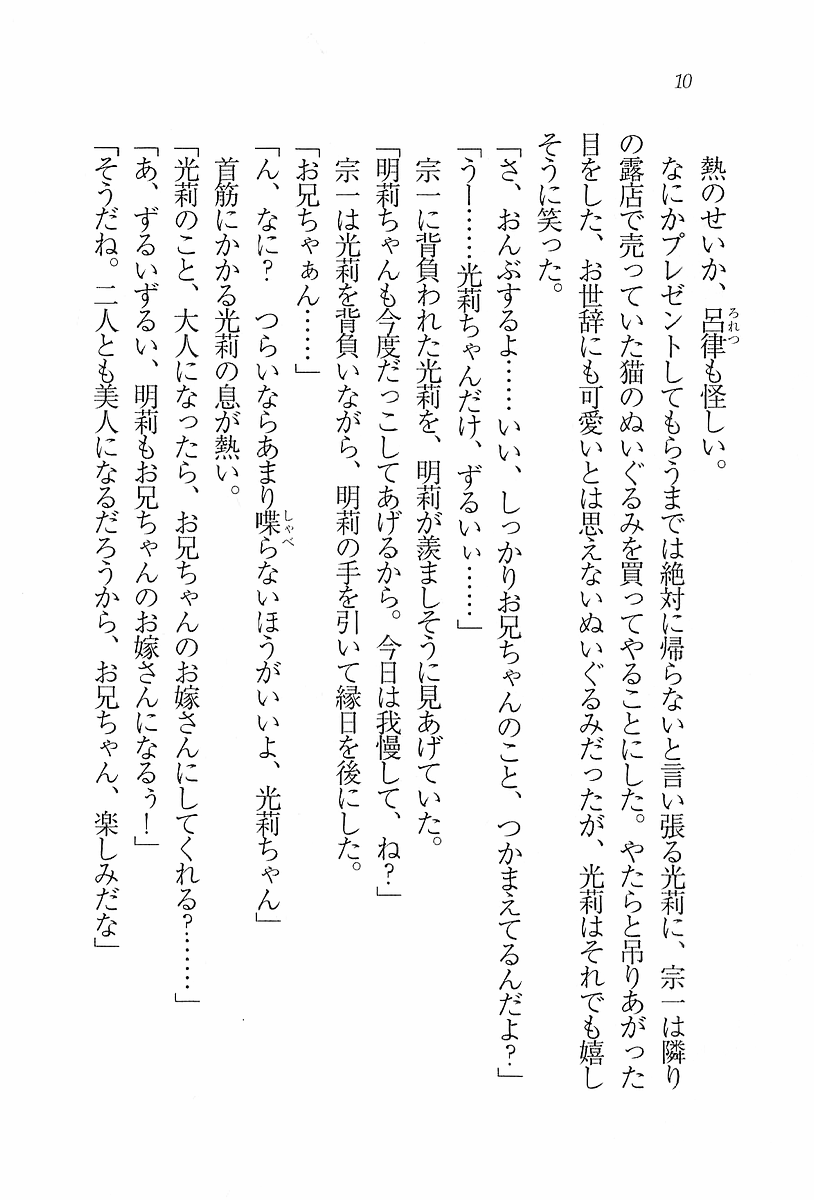 10
熱のせいか、呂律も怪しい。
なにかプレゼントしてもらうまでは絶対に帰らないと言い張る光莉に、宗一は隣り
の露店で売っていた猫のぬいぐるみを買ってやることにした。やたらと吊りあがった
目をした、お世辞にも可愛いとは思えないぬいぐるみだったが、光莉はそれでも嬉し
そうに笑った。
「さ、おんぶするよ……いい、しっかりお兄ちゃんのこと、つかまえてるんだよ？」
「うー……光莉ちゃんだけ、ずるいぃ……」
宗一に背負われた光莉を、明莉が羨ましそうに見あげていた。
「明莉ちゃんも今度だっこしてあげるから。今日は我慢して、ね？」
宗一は光莉を背負いながら、明莉の手を引いて縁日を後にした。
「お兄ちゃぁん……」
「ん、なに？　つらいならあまり喋らないほうがいいよ、光莉ちゃん」
首筋にかかる光莉の息が熱い。
「光莉のこと、大人になったら、お兄ちゃんのお嫁さんにしてくれる？……」
「あ、ずるいずるい、明莉もお兄ちゃんのお嫁さんになるぅ！」
「そうだね。二人とも美人になるだろうから、お兄ちゃん、楽しみだな」
ろれつ
しゃべ